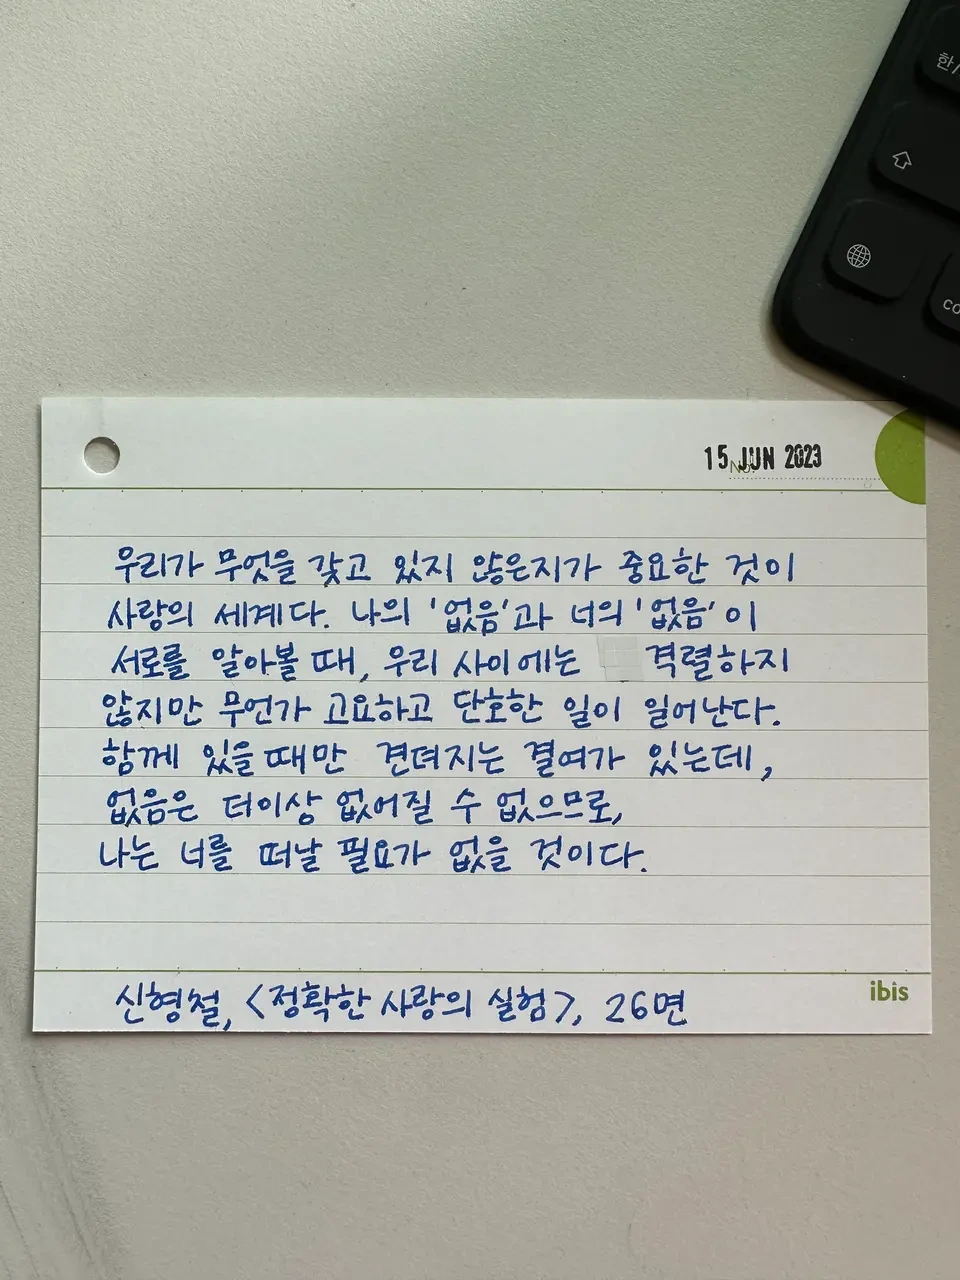 한/
co
15 JUN 2023
No.
우리가 무엇을 갖고 있지 않은지가 중요한 것이
사랑의 세계다. 나의 '없음'과 너의 '없음'이
서로를 알아볼 때, 우리 사이에는 격렬하지
않지만 무언가 고요하고 단호한 일이 일어난다.
함께 있을 때만 견뎌지는 결여가 있는데,
없음은 더이상 없어질 수 없으므로,
나는 너를 떠날 필요가 없을 것이다.
ibis
신형철, <정확한 사랑의 실험>, 26면